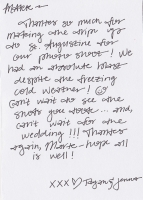 Thanks so much for
making the trip up
to St. Augustine for
our photo shoot! We
had an absolute blast
despite the freezing
cold weather! 
Can't wait to see the
shots you took... and,
can't wait for the
wedding!!! Thanks
again, hope all
is well!
XXX ♡